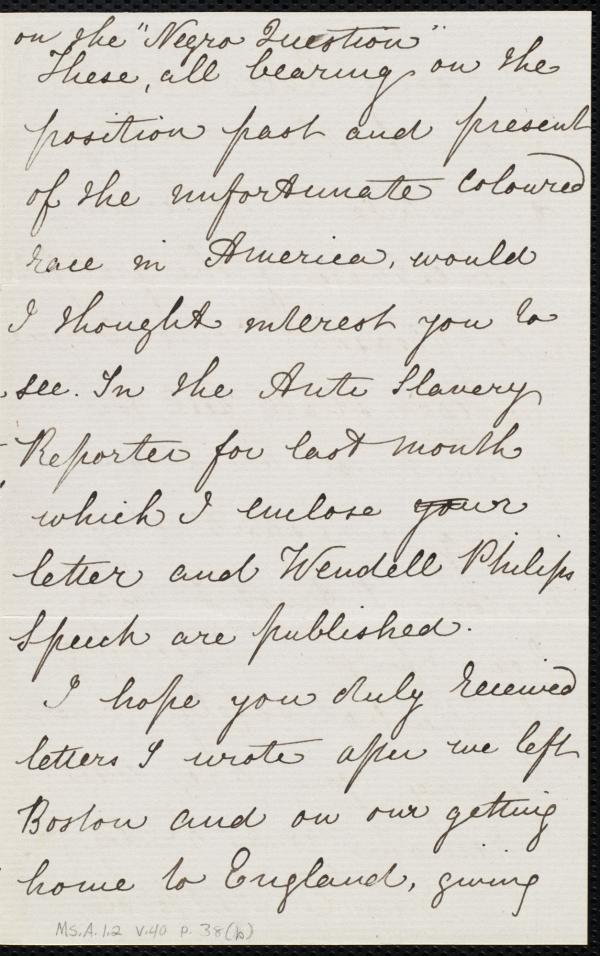 on the "Negro Question"
These, all bearing on the
position past and present
of the unfortunate coloured
race in America, would
I thought interest you to
see. In the Anti Slavery
Reporter for last month
which I enclose your
letter and Wendell Philips
Speech are published.
I hope you duly received
letters I wrote after we left
Boston and on our getting
home to England, giving
Ms.A.1.2 v.40 p. 38(b)